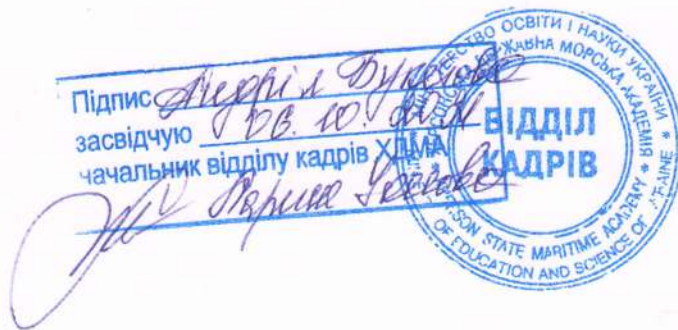 Підпис Андрія Букетова
засвідчую 06.10.
начальник відділу кадрів ХДМА
Марина
МІНІСТЕРСТВО ОСВІТИ І НАУКИ УКРАЇНИ *
ХЕРСОНСЬКА ДЕРЖАВНА МОРСЬКА АКАДЕМІЯ *
ВІДДІЛ
КАДРІВ
KHERSON STATE MARITIME ACADEMY
OF EDUCATION AND SCIENCE OF UKRAINE *